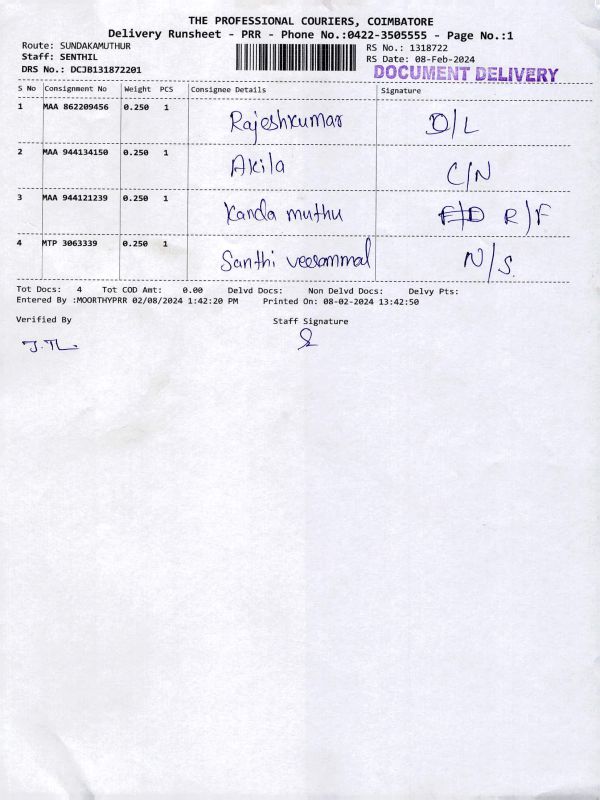 THE PROFESSIONAL COURIERS, COIMBATORE
Delivery Runsheet - PRR - Phone No.:0422-3505555 - Page No.:1
Route: SUNDAKAMUTHUR RS No.: 1318722
Staff: SENTHIL RS Date: 08-Feb-2024
DRS No.: DCJB131872201 DOCUMENT DELIVERY
S No Consignment No Weight PCS Consignee Details Signature
1 MAA 862209456 0.250 1 Rajeshkumar D/L
2 MAA 944134150 0.250 1 Akila C/N
3 MAA 944121239 0.250 1 Kanda muthu R/F
4 MTP 3063339 0.250 1 Santhi veerammal N/S
Tot Docs: 4 Tot COD Amt: 0.00 Delvd Docs: Non Delvd Docs: Delvy Pts:
Entered By :MOORTHYPRR 02/08/2024 1:42:20 PM Printed On: 08-02-2024 13:42:50
Verified By Staff Signature